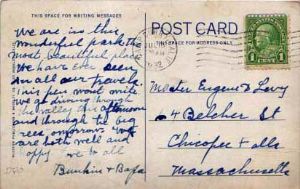 THIS SPACE FOR WRITING MESSAGES
POST CARD
THIS SPACE FOR ADDRESS ONLY
We are in this
wonderful park the
most beautiful place
we have ever seen
in all our travels
this pen wont write
We go driving through
the valley this afternoon
and through the big
trees tomorrow. We
are both well and
happy love to all
1
Master Eugene Levy
64 Belcher St
Chicopee Falls
Massachusetts